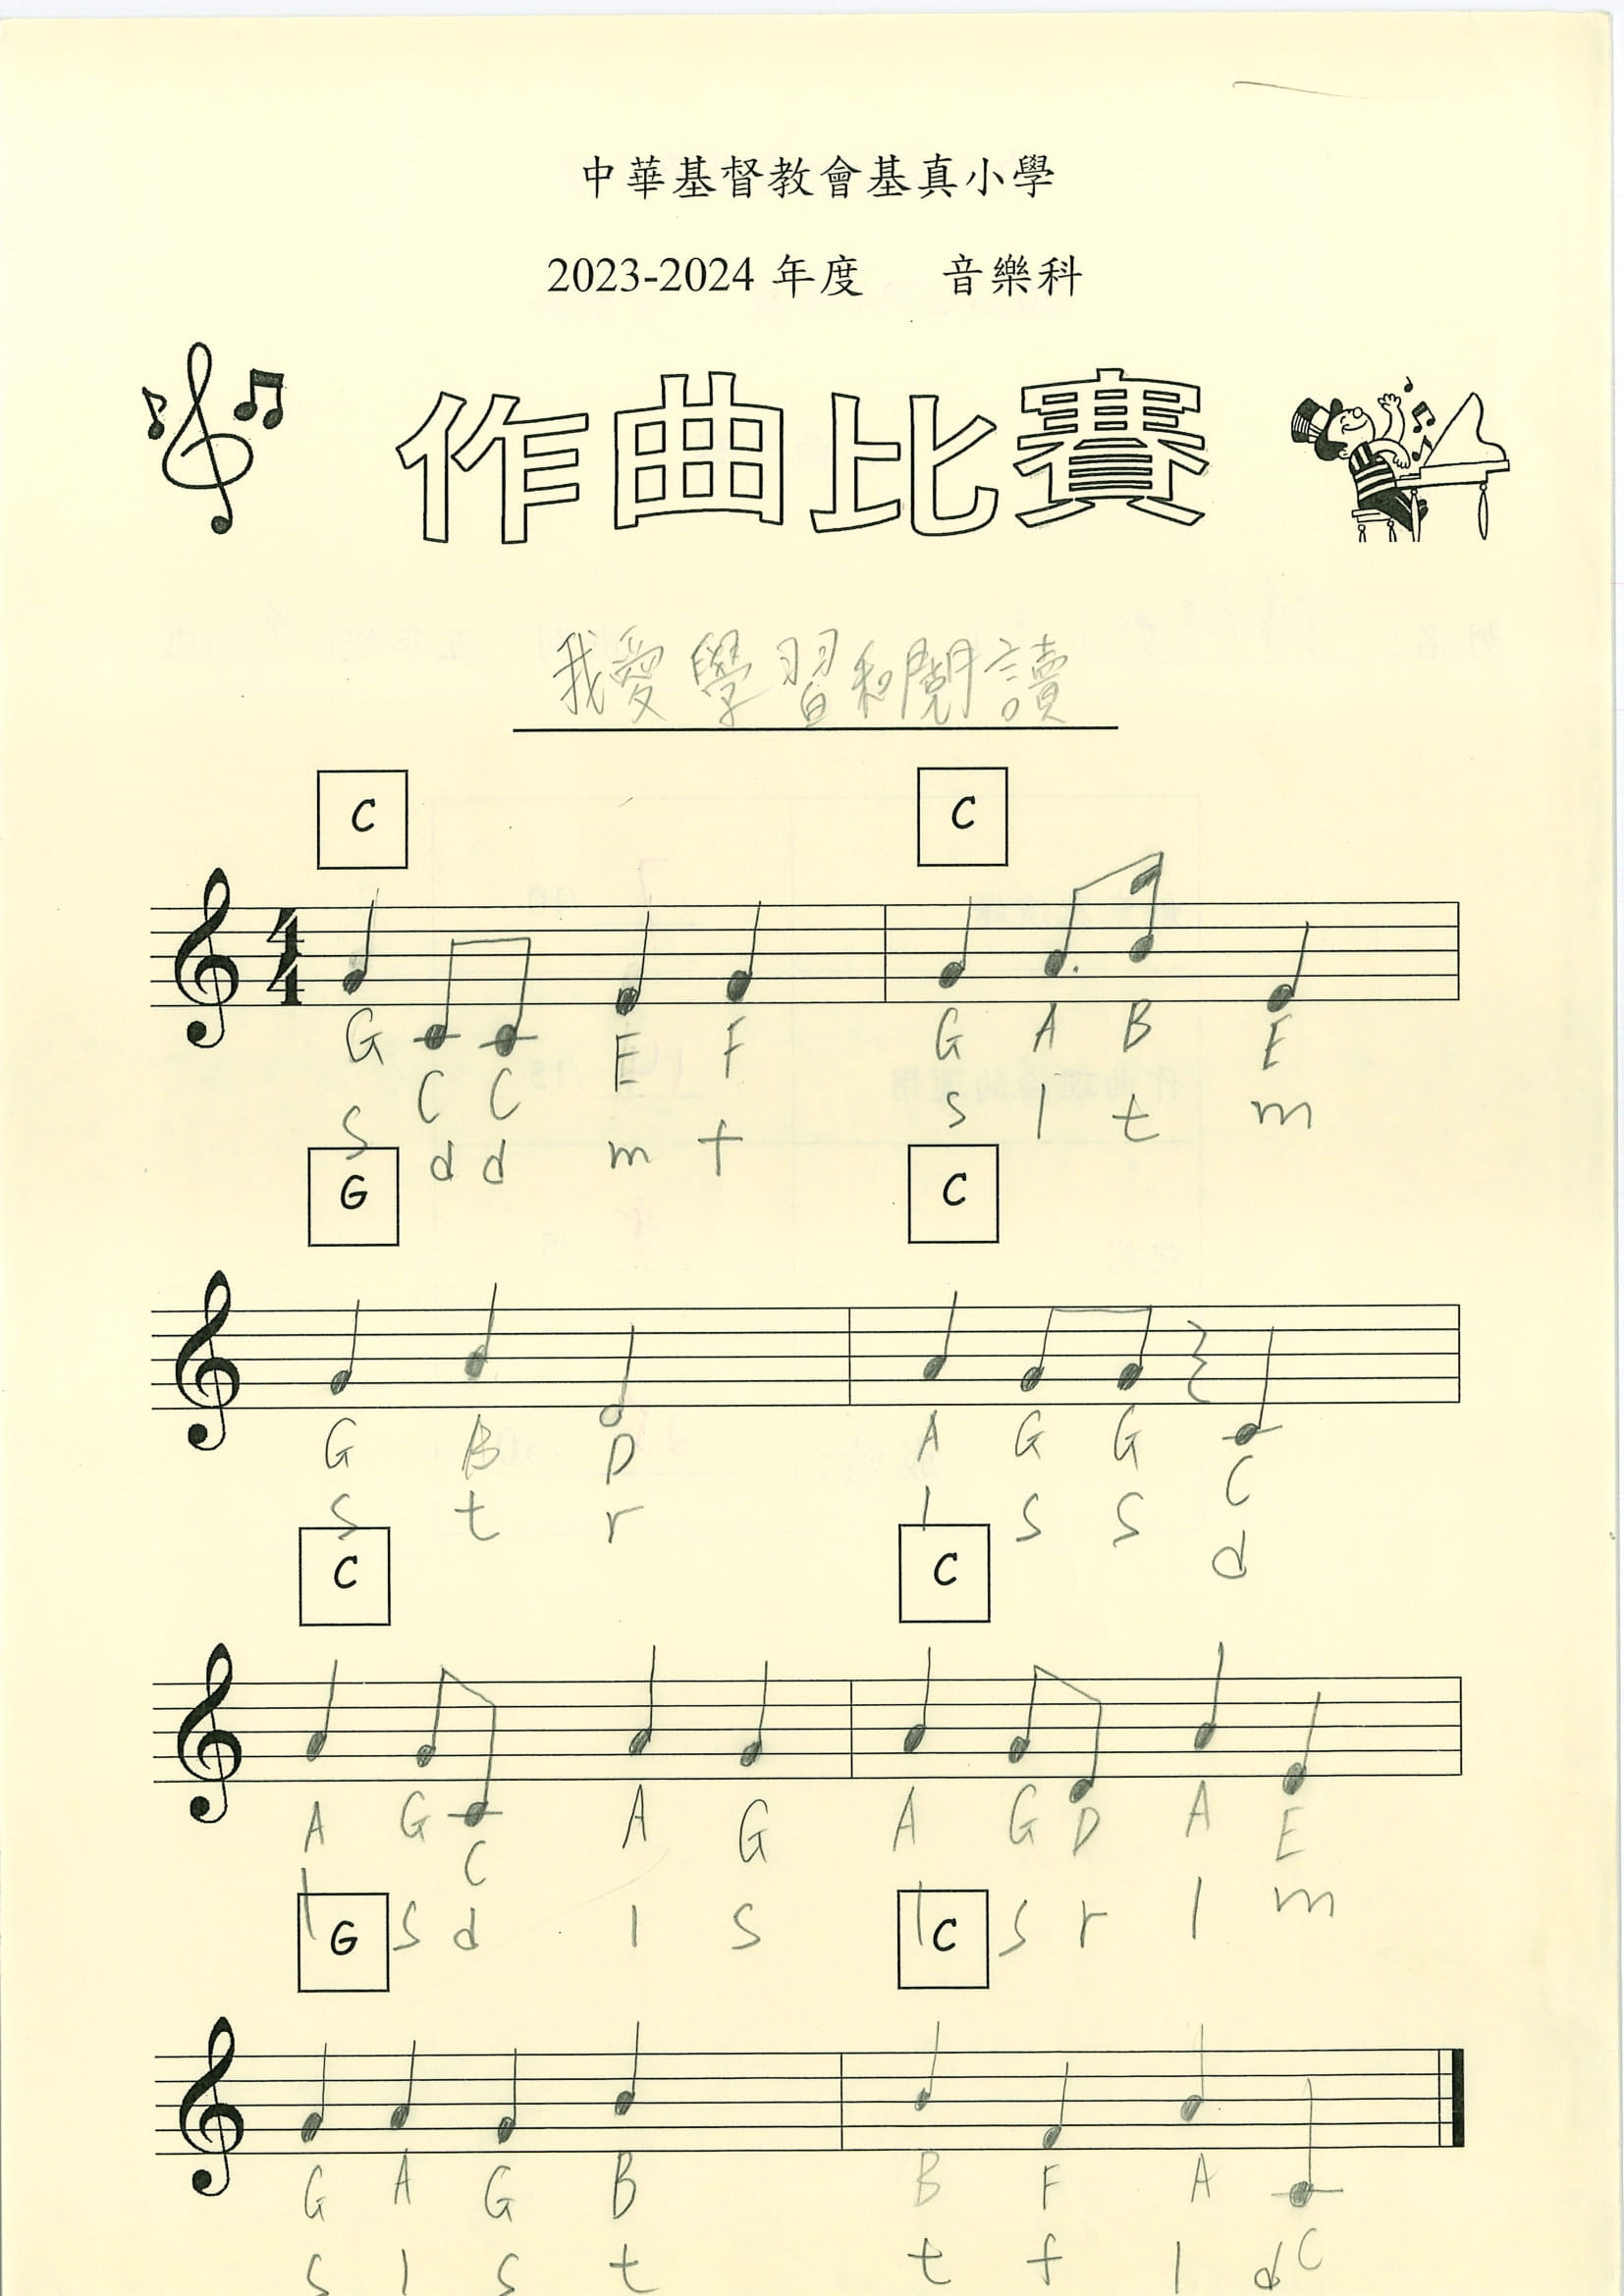 中華基督教會基真小學
2023-2024 年度 音樂科
作曲比賽
我愛學習和閱讀
C C
4
4
G C C E F G A B E
s d d m f s l t m
G C
G B D A G G C
s t r l s s d
C C
A G C A G A G D A E
l s d l s l s r l m
G C
G A G B B F A C
s l s t t f l d